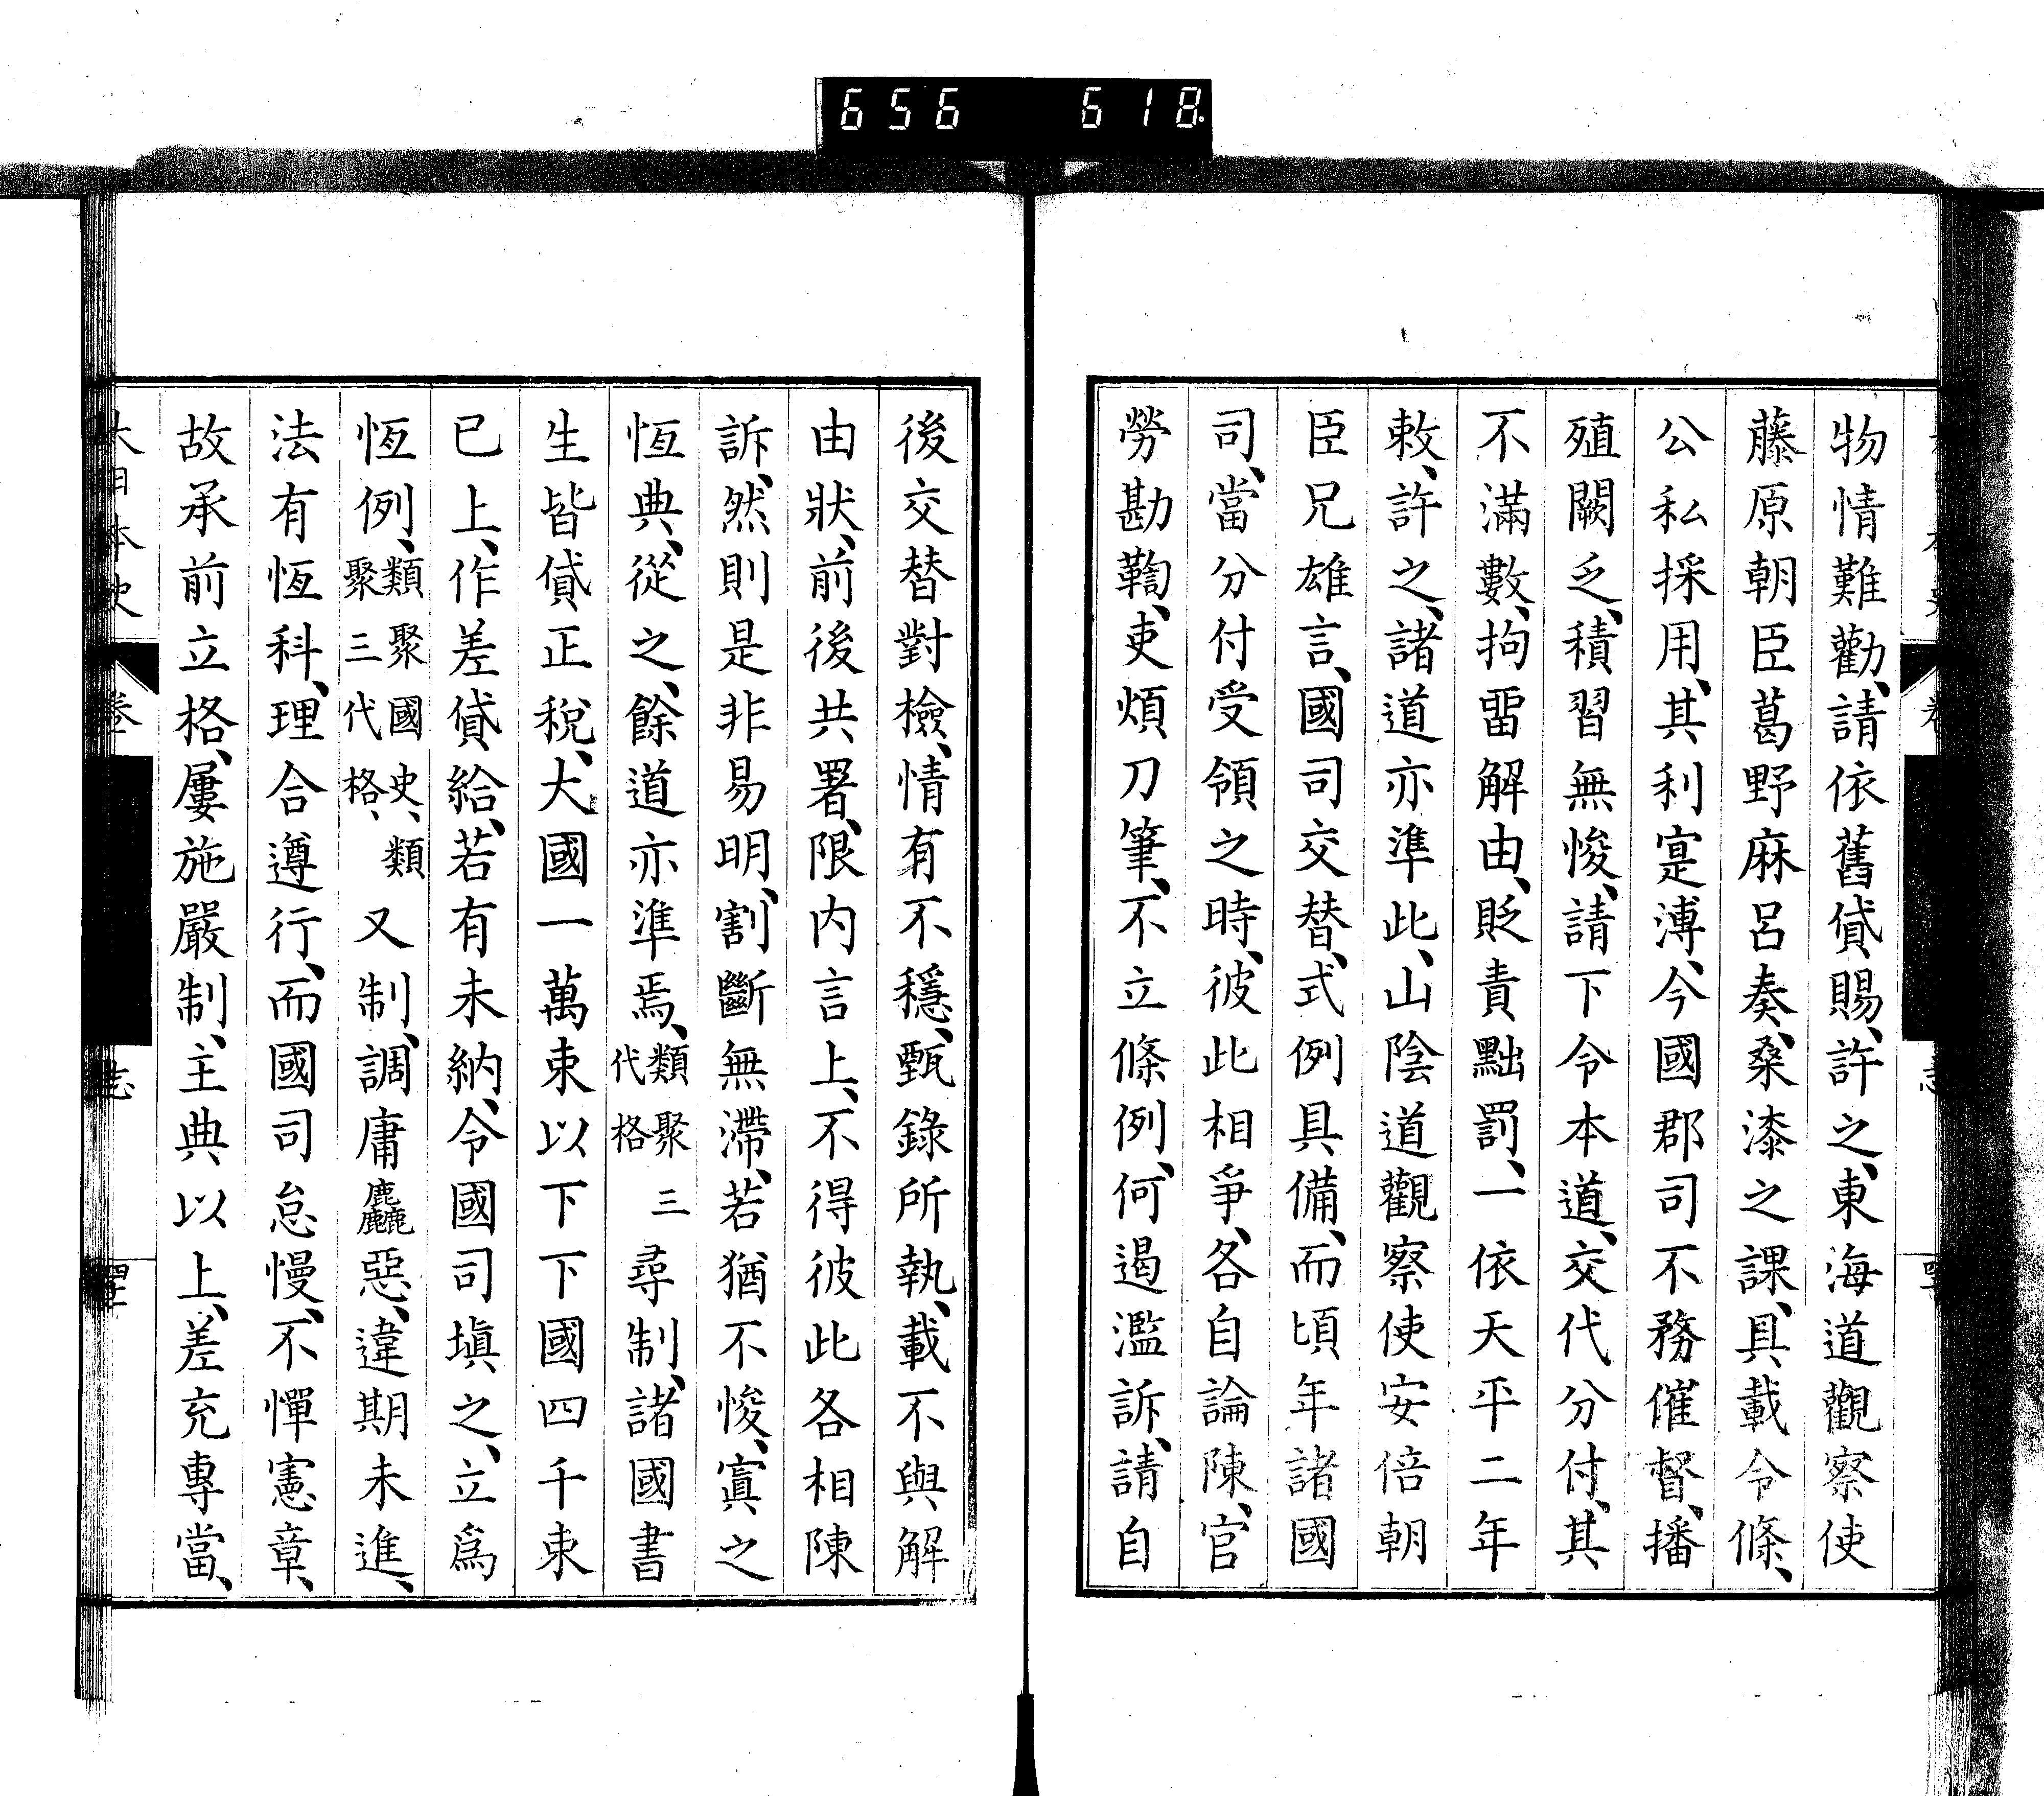 656 618
物情難勸、請依舊貸賜、許之、東海道觀察使
藤原朝臣葛野麻呂奏、桑漆之課、具載令條、
公私採用、其利寔溥、今國郡司不務催督、播
殖闕乏、積習無悛、請下令本道、交代分付、其
不滿數、拘畱解由、貶責黜罰、一依天平二年
敕、許之、諸道亦準此、山陰道觀察使安倍朝
臣兄雄言、國司交替、式例具備、而頃年諸國
司、當分付受領之時、彼此相爭、各自論陳、官
勞勘鞫、吏煩刀筆、不立條例、何遏濫訴、請自
後交替對檢、情有不穩、甄錄所執、載不與解
由狀、前後共署、限内言上、不得彼此各相陳
訴、然則是非易明、割斷無滯、若猶不悛、寘之
恆典、從之、餘道亦準焉、類聚三代格尋制、諸國書
生皆貸正稅、大國一萬束以下下國四千束
已上、作差貸給、若有未納、令國司塡之、立爲
恆例、類聚國史、類聚三代格、又制、調庸麤惡、違期未進、
法有恆科、理合遵行、而國司怠慢、不憚憲章、
故承前立格、屢施嚴制、主典以上、差充專當、
大日本史 卷 志